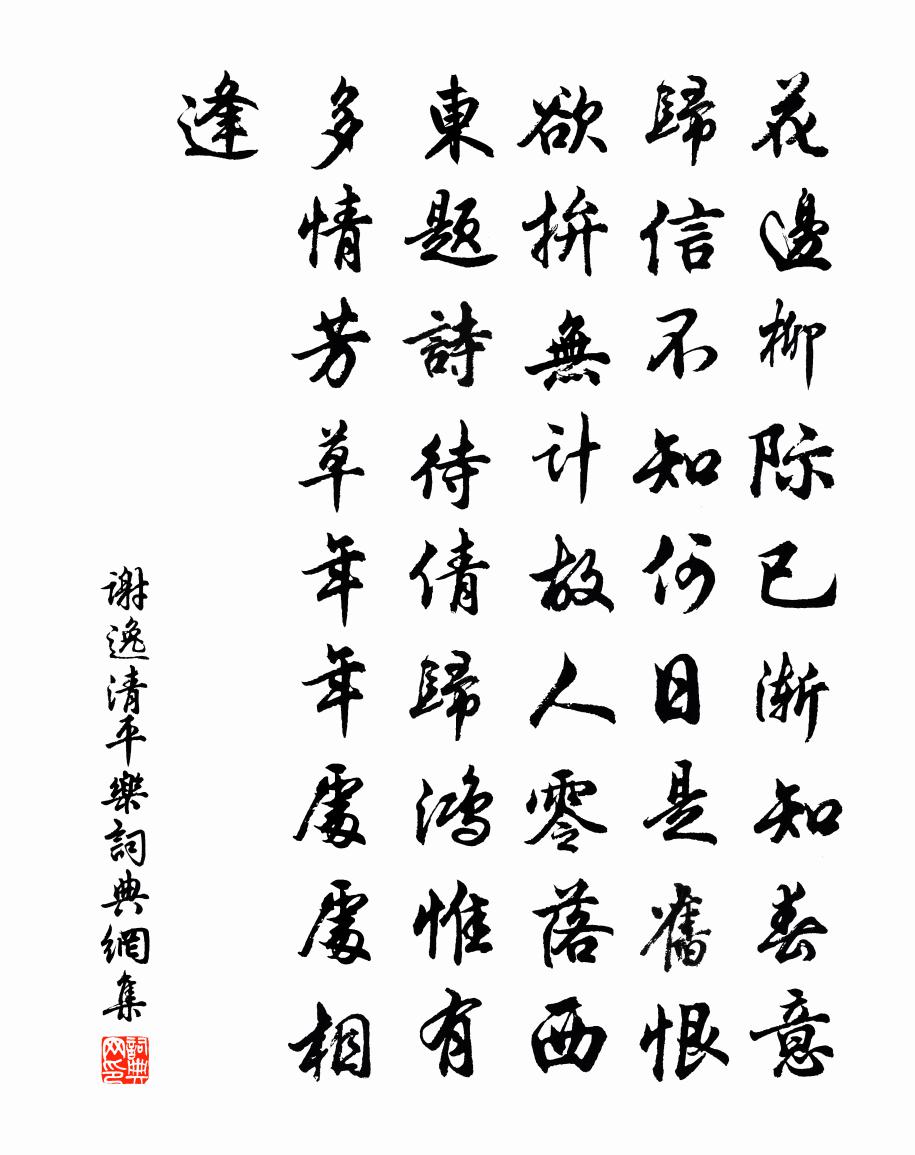 花邊柳际已渐知春意
歸信不知何日是舊恨
欲拚無计故人零落西
東题詩待倩歸鸿惟有
多情芳草年年處處相
逢
谢逸清平樂詞典網集
詞典网印